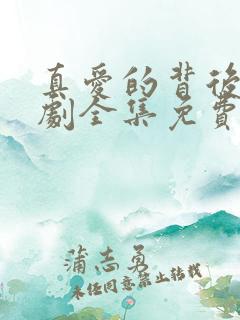 真愛的背後
劇全集免費
蒲志勇
未经同意禁止转载